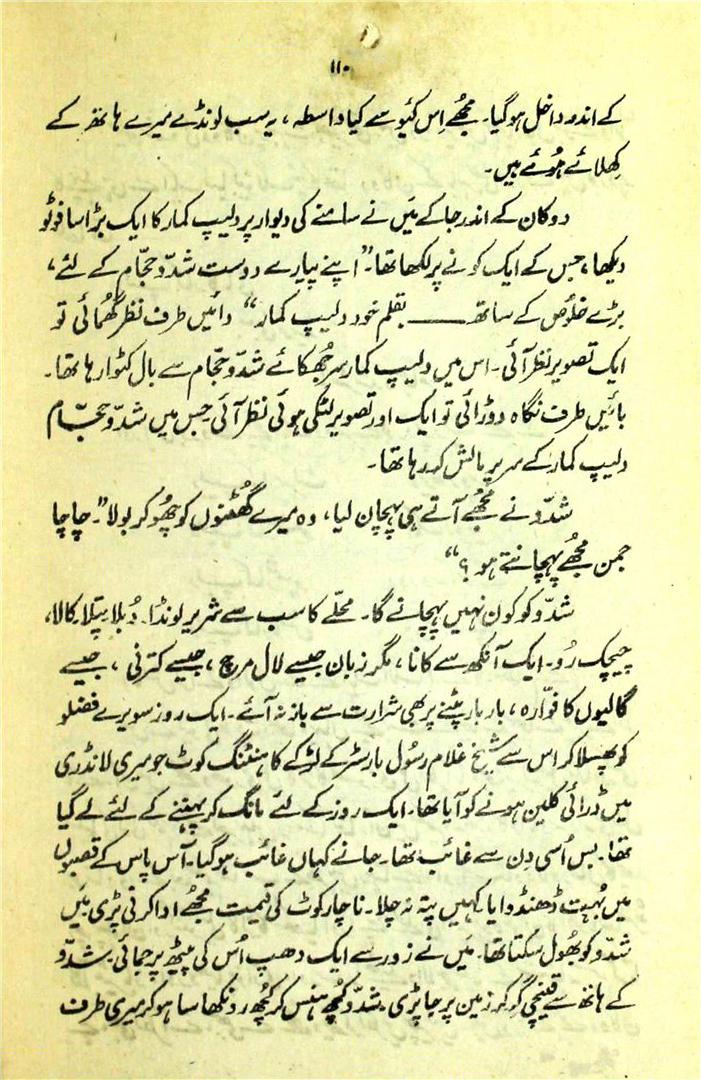 ۱۱۰
کے اندر داخل ہوگیا۔ مجھے اِس کئیو سے کیا واسطہ، یہ سب لونڈے میرے ہاتھ کے
کِھلائے ہُوئے ہیں۔
دوکان کے اندر جا کے مَیں نے سامنے کی دیوار پر دلیپ کمار کا ایک بڑا سا فوٹو
دیکھا، جس کے ایک کونے پر لکھا تھا۔ ”اپنے پیارے دوست شدّو حجّام کے لئے،
بڑے خلُوص کے ساتھ ــــــ بقلم خود دلیپ کمار“ دائیں طرف نظر گھُمائی تو
ایک تصویر نظر آئی۔ اس میں دلیپ کمار سر جُھکائے شدّو حجّام سے بال کٹوا رہا تھا۔
بائیں طرف نگاہ دوڑائی تو ایک اور تصویر لٹکی ہوئی نظر آئی جس میں شدّو حجّام
دلیپ کمار کے سر پر مالش کر رہا تھا۔
شدّو نے مجُھے آتے ہی پہچان لیا، وہ میرے گھُٹنوں کو چھُو کر بولا ”۔ چاچا
جمن مجُھے پہچانتے ہو ؟“
شدّو کو کون نہیں پہچانے گا۔ محلّے کا سب سے شریر لونڈا۔ دُبلا پتلا۔ کالا،
چیچک رُو۔ ایک آنکھ سے کانا، مگر زبان جیسے لال مرچ، جیسے کترنی، جیسے
گالیوں کا فوّارہ، بار بار پٹنے پر بھی شرارت سے باز نہ آئے۔ ایک روز سویرے فضلو
کو پھسلا کر اس سے شیخ غلام رسُول بارسٹر کے لڑکے کا ہنٹنگ کوٹ جو میری لانڈری
میں ڈرائی کلین ہونے کو آیا تھا۔ ایک روز کے لئے مانگ کر پہننے کے لئے لے گیا
تھا۔ بس اُسی دِن سے غائب تھا۔ جانے کہاں غائب ہوگیا۔ آس پاس کے قصبوں
میں بُہت ڈھنڈوایا کہیں پتہ نہ چلا۔ ناچار کوٹ کی قیمت مجھے ادا کرنی پڑی مَیں
شدّو کو بھُول سکتا تھا۔ مَیں نے زور سے ایک دھپ اُس کی پیٹھ پر جمائی۔ شدّو
کے ہاتھ سے قینچی گِر کر زمین پر جا پڑی۔ شدّو کچُھ ہنس کر کچُھ رونکھا سا ہو کر میری طرف